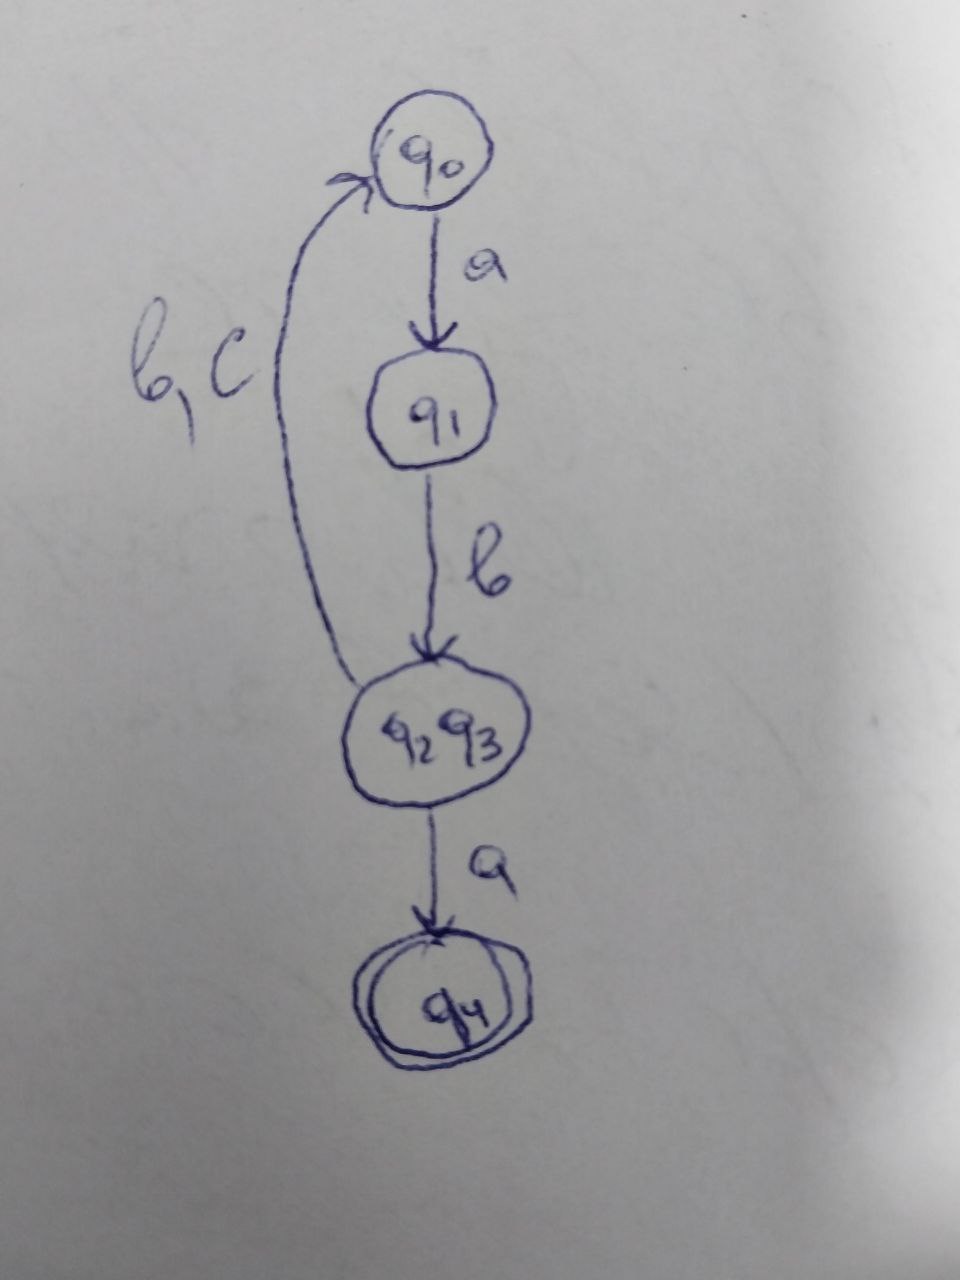 q0
a
b, c
q1
b
q2 q3
a
q4